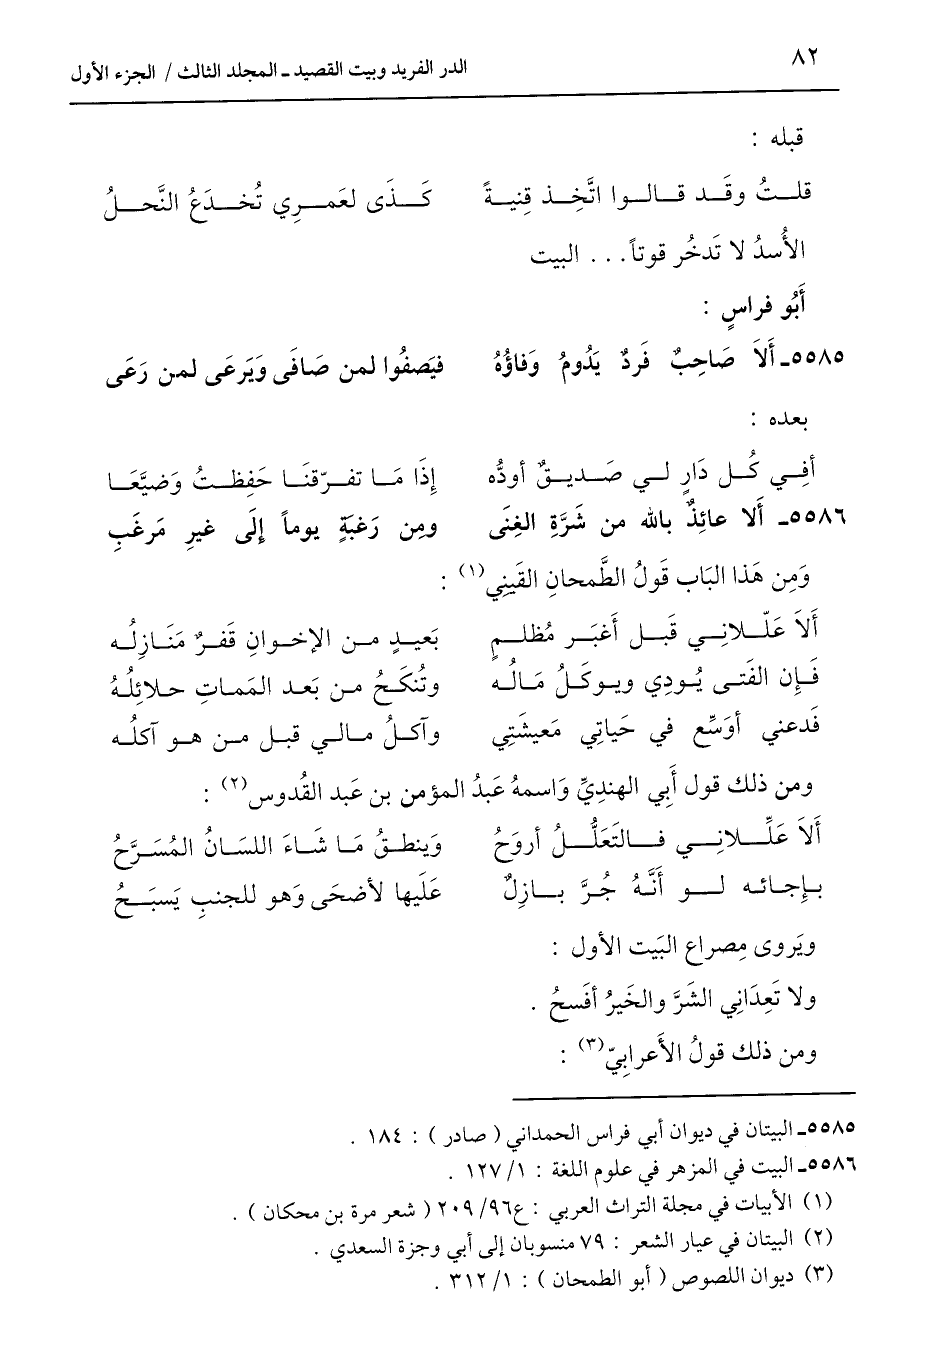 ٨٢
الدر الفريد وبيت القصيد ـ المجلد الثالث / الجزء الأول
قبله :
قلتُ وقَد قالوا اتَّخِذ قِنيةً كَذَى لعَمرِي تُخدَعُ النَّحلُ
الأُسدُ لا تَدخُر قوتاً . . . البيت
أَبُو فراسٍ :
٥٥٨٥ـ أَلاَ صَاحِبٌ فَردٌ يَدُومُ وَفاؤُهُ فيَصفُوا لمن صَافَى وَيَرعَى لمن رَعَى
بعده :
أفِي كُل دَارٍ لي صَديقٌ أودُّه إذَا مَا تفرّقنَا حَفِظتُ وَضيَّعَا
٥٥٨٦ـ أَلا عائذٌ بالله من شَرَّةِ الغِنَى ومِن رَغبَةٍ يوماً إلَى غيرِ مَرغَبِ
وَمِن هَذا البَاب قَولُ الطَّمحانِ القَينِي(١) :
ألاَ عَلّلانِي قَبل أغبَر مُظلمٍ بَعيدٍ من الإخوانِ قَفرٌ مَنَازلُه
فَإن الفَتى يُودِي ويوكلُ مَالُه وتُنكَحُ من بَعد المَماتِ حلائلُهُ
فَدعني أوَسِّع في حَيَاتِي مَعيشَتِي وآكلُ مالي قبل من هو آكلُه
ومن ذلك قول أَبِي الهنديِّ وَاسمهُ عَبدُ المؤمن بن عَبد القُدوس(٢) :
ألاَ عَلِّلانِي فالتَعلُّلُ أروَحُ وَينطقُ مَا شَاءَ اللسَانُ المُسَرَّحُ
بإجانه لو أنَّهُ جُرَّ بازِلٌ عَلَيها لأضحَى وَهو للجنبِ يَسبَحُ
ويَروى مِصراع البَيت الأول :
ولا تَعِدَانِي الشَرَّ والخَيرُ أفسَحُ .
ومن ذلك قولُ الأَعرابِيّ(٣) :
٥٥٨٥ـ البيتان في ديوان أبي فراس الحمداني ( صادر ) : ١٨٤ .
٥٥٨٦ـ البيت في المزهر في علوم اللغة : ١/ ١٢٧ .
(١) الأبيات في مجلة التراث العربي : ع٩٦/ ٢٠٩ ( شعر مرة بن محكان ) .
(٢) البيتان في عيار الشعر : ٧٩ منسوبان إلى أبي وجزة السعدي .
(٣) ديوان اللصوص ( أبو الطمحان ) : ١/ ٣١٢ .